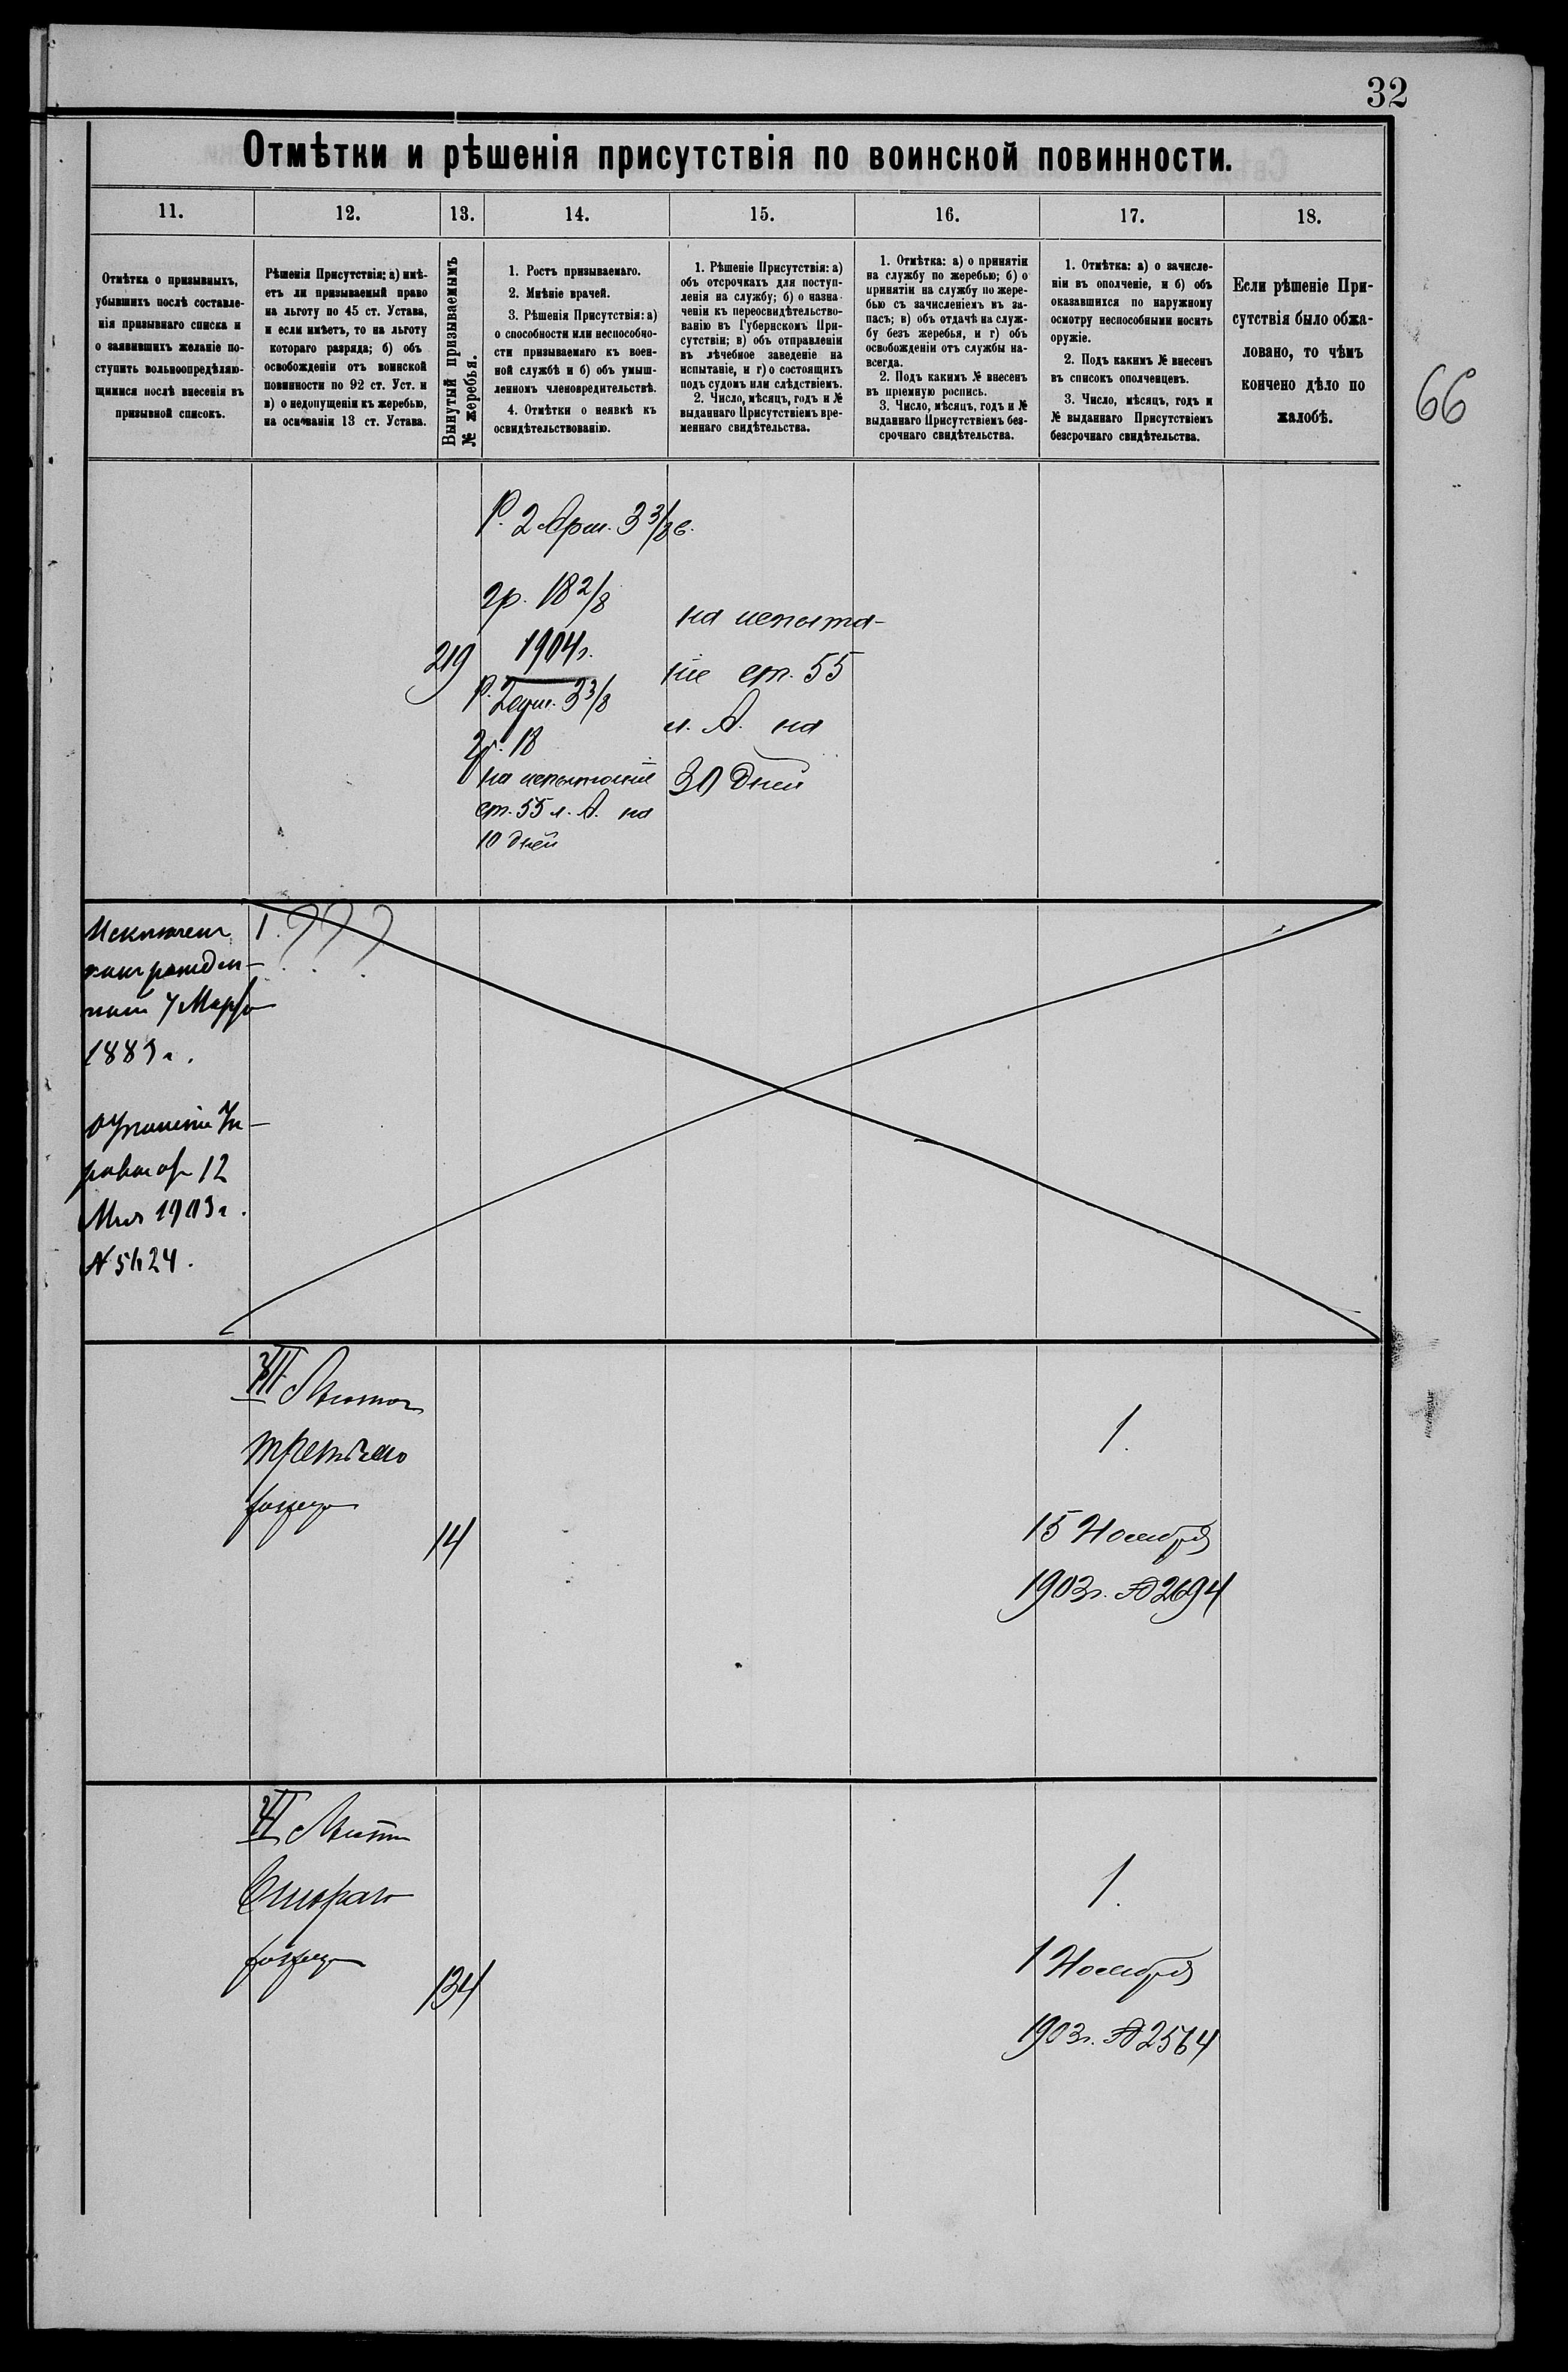 32
Отмѣтки и рѣшенія присутствія по воинской повинности.
11.
12.
13.
14.
15.
16.
17.
18.
Отмѣтка о призывныхъ,
убывшихъ послѣ составле-
нія призывнаго списка и
о заявившихъ желаніе по-
ступить вольноопредѣляю-
щимися послѣ внесенія въ
призывной списокъ.
Рѣшенія Присутствія: а) имѣ-
етъ ли призываемый право
на льготу по 45 ст. Устава,
и если имѣетъ, то на льготу
котораго разряда; б) объ
освобожденіи отъ воинской
повинности по 92 ст. Уст. и
в) о недопущеніи къ жеребью,
на основаніи 13 ст. Устава.
Вынутый призываемымъ
№ жеребья.
1. Ростъ призываемаго.
2. Мнѣніе врачей.
3. Рѣшенія Присутствія: а)
о способности или неспособно-
сти призываемаго къ воен-
ной службѣ и б) объ умыш-
ленномъ членовредительствѣ.
4. Отмѣтки о неявкѣ къ
освидѣтельствованію.
1. Рѣшеніе Присутствія: а)
объ отсрочкахъ для поступ-
ленія на службу; б) о назна-
ченіи къ переосвидѣтельство-
ванію въ Губернскомъ При-
сутствіи; в) объ отправленіи
въ лѣчебное заведеніе на
испытаніе, и г) о состоящихъ
подъ судомъ или слѣдствіемъ.
2. Число, мѣсяцъ, годъ и №
выданнаго Присутствіемъ вре-
меннаго свидѣтельства.
1. Отмѣтка: а) о принятіи
на службу по жеребью; б) о
принятіи на службу по жере-
бью съ зачисленіемъ въ за-
пасъ; в) объ отдачѣ на служ-
бу безъ жеребья, и г) объ
освобожденіи отъ службы на-
всегда.
2. Подъ какимъ № внесенъ
въ пріемную роспись.
3. Число, мѣсяцъ, годъ и №
выданнаго Присутствіемъ без-
срочнаго свидѣтельства.
1. Отмѣтка: а) о зачисле-
ніи въ ополченіе, и б) объ
оказавшихся по наружному
осмотру неспособными носить
оружіе.
2. Подъ какимъ № внесенъ
въ списокъ ополченцевъ.
3. Число, мѣсяцъ, годъ и
№ выданнаго Присутствіемъ
безсрочнаго свидѣтельства.
Если рѣшеніе При-
сутствія было обжа-
ловано, то чѣмъ
кончено дѣло по
жалобѣ.
66
219
Р. 2 Арш. 3 3/8 в.
гр. 18 2/8
1904 г.
Р. 2 арш. 3 3/8
гр. 18
на испытаніе
ст. 55 л. А. на
10 дней
на испыта-
ніе ст. 55
л. А. на
30 дней
Исключенъ
какъ рожден-
ный 7 Марта
1883 г.
12
Мая 1903 г.
1
???
III Льгота
третьяго
разряда
14
1.
15 Ноября
1903 г. № 2694
II Льгота
Второго
разряда
134
1.
1 Ноября
1903 г. № 2564